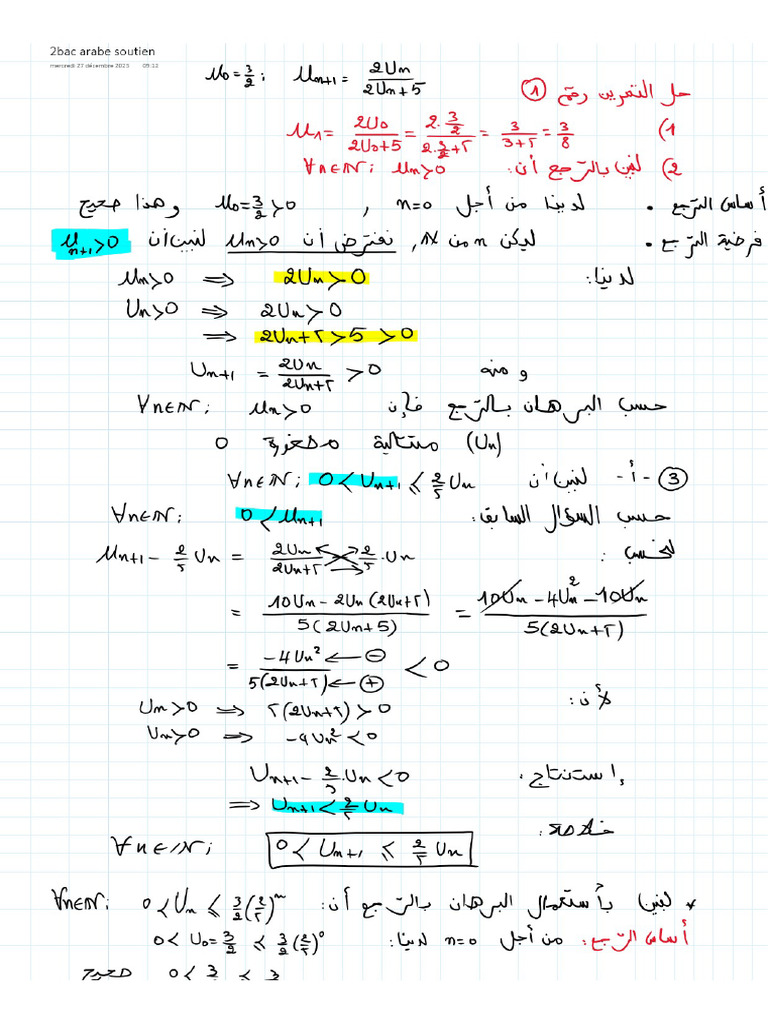 2bac arabe soutien
mercredi 27 décembre 2023 09:33
U₀ = 3/2 ; Uₙ₊₁ = 2Uₙ / (2Uₙ + 5)
حل التمرين رقم ①
1) U₁ = 2U₀ / (2U₀+5) = (2·3/2) / (2·3/2 + 5) = 3 / (3+5) = 3/8
2) لنبين بالترجع أن: ∀n∈ℕ ; Uₙ>0
أساس الترجع • لدينا من أجل n=0 , U₀=3/2>0 وهذا صحيح
فرضية الترجع • ليكن n من ℕ, نفترض أن Uₙ>0 لنبين أن Uₙ₊₁>0
لدينا: Uₙ>0 ⟹ 2Uₙ>0
Uₙ>0 ⟹ 2Uₙ>0
⟹ 2Uₙ+5>5>0
ومنه Uₙ₊₁ = 2Uₙ / (2Uₙ+5) > 0
حسب البرهان بالترجع فإن Uₙ>0 ∀n∈ℕ ;
(Uₙ) متتالية مصغورة 0
③ -أ- لنبين أن ∀n∈ℕ ; 0<Uₙ₊₁ ≤ 2/5 Uₙ
حسب السؤال السابق: 0<Uₙ₊₁ ∀n∈ℕ ;
لنحسب : Uₙ₊₁ − 2/5 Uₙ = 2Uₙ / (2Uₙ+5) − 2/5 · Uₙ
= (10Uₙ − 2Uₙ(2Uₙ+5)) / 5(2Uₙ+5) = (10Uₙ − 4Uₙ² − 10Uₙ) / 5(2Uₙ+5)
= −4Uₙ² ← ⊖ / 5(2Uₙ+5) ← ⊕ < 0
لأن: Uₙ>0 ⟹ 5(2Uₙ+5)>0
Uₙ>0 ⟹ −4Uₙ²<0
إستنتاج. Uₙ₊₁ − 2/5 · Uₙ<0
⟹ Uₙ₊₁< 2/5 Uₙ
خلاصة:
∀n∈ℕ ; 0< Uₙ₊₁ ≤ 2/5 Uₙ
* لنبين بأستعمال البرهان بالترجع أن: ∀n∈ℕ ; 0<Uₙ ≤ 3/2 (2/5)ⁿ
أساس الترجع: من أجل n=0 لدينا: 0< U₀=3/2 ≤ 3/2 (2/5)⁰
0< 3/ < 3/ صحيح